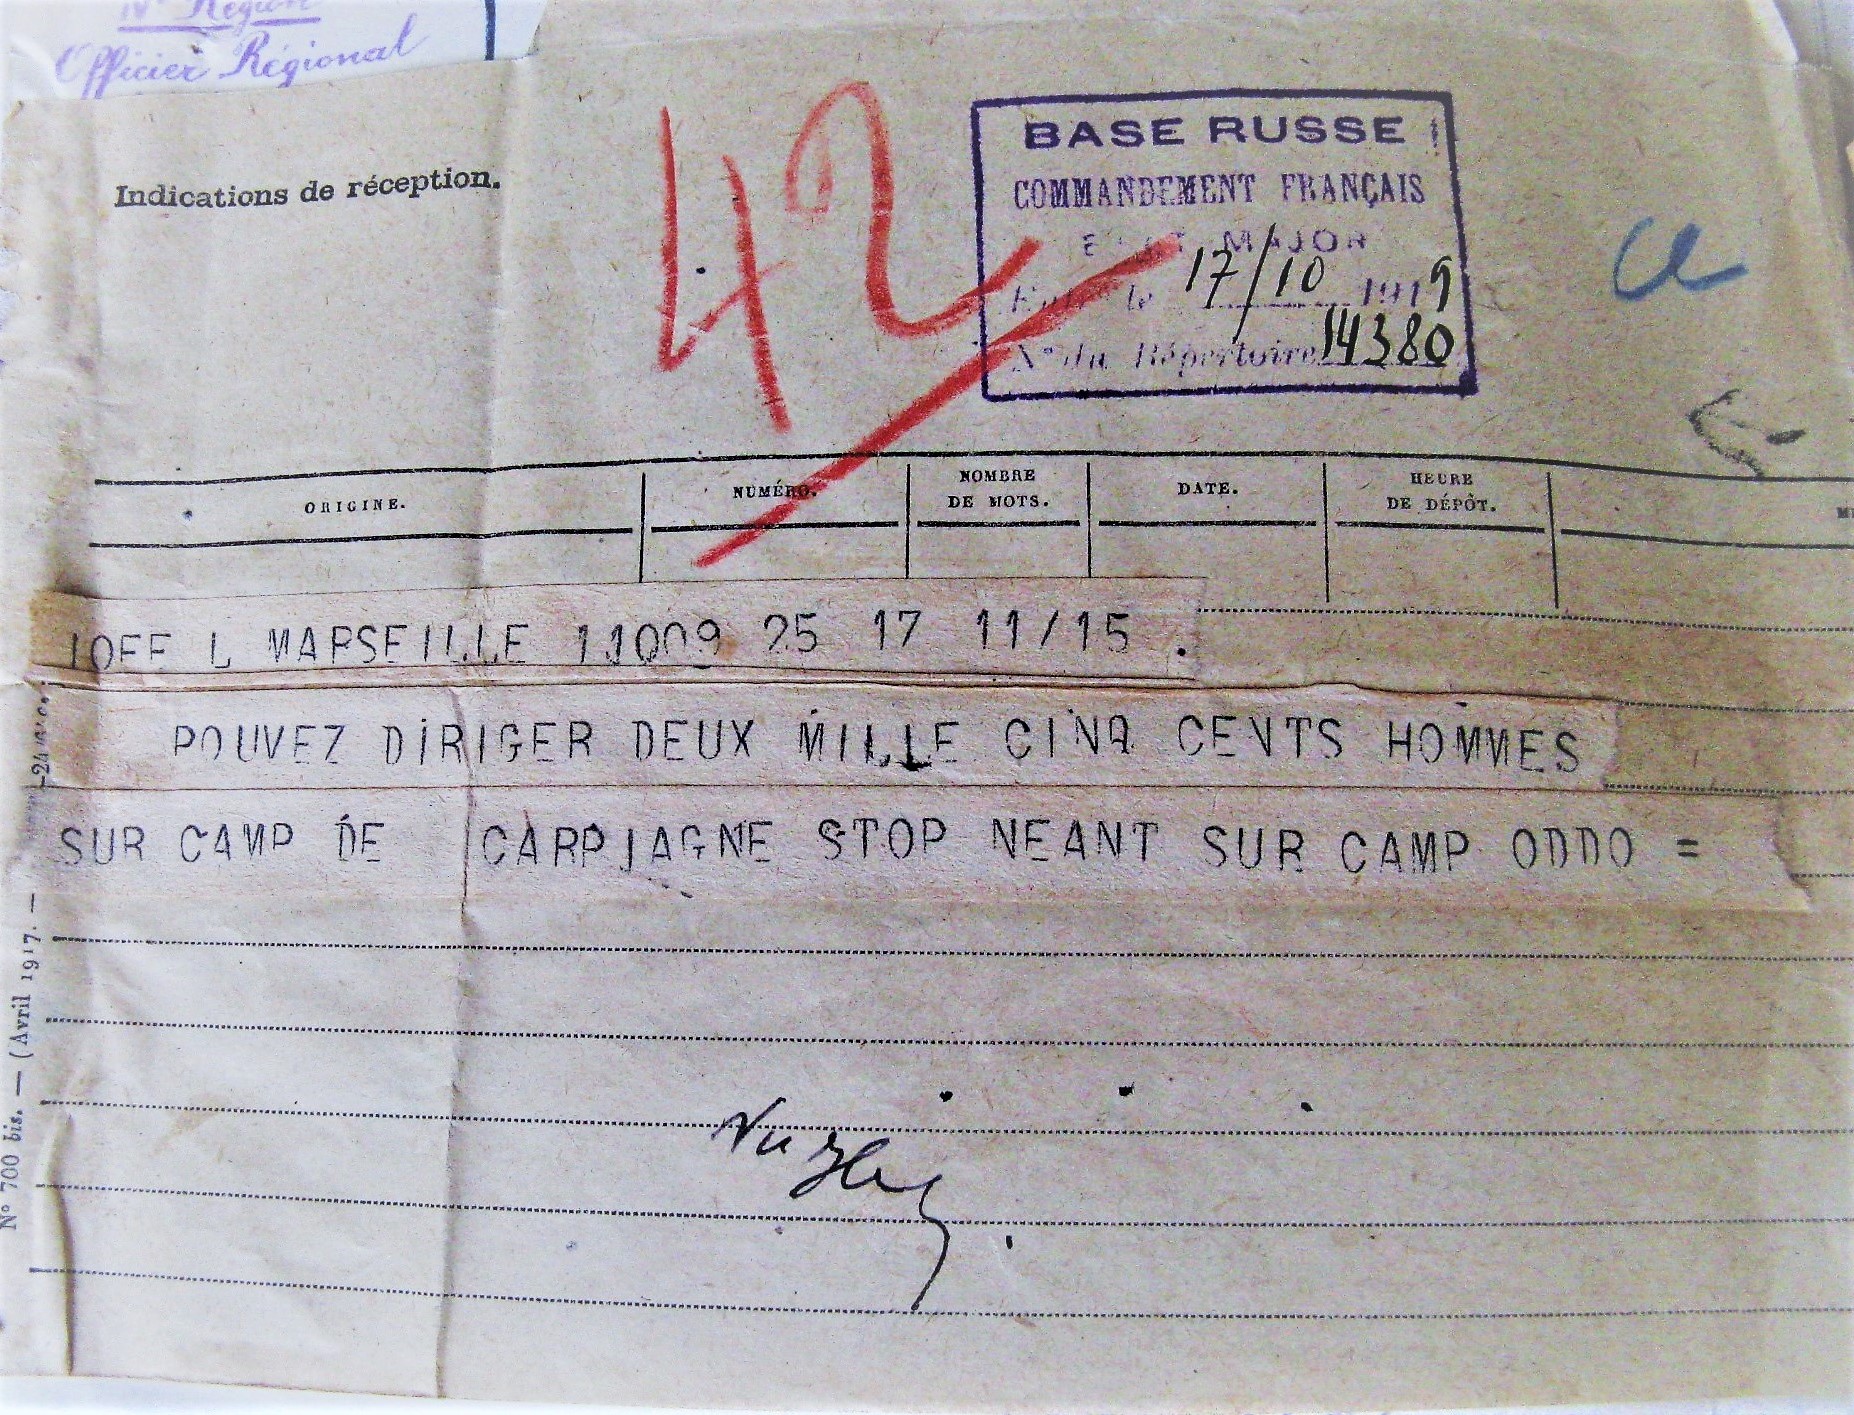 Officier Régional
Indications de réception.
42
BASE RUSSE
COMMANDEMENT FRANÇAIS
MAJOR
le 17/10 1919
N° du Répertoire 14380
ORIGINE.
NUMÉRO.
NOMBRE
DE MOTS.
DATE.
HEURE
DE DÉPÔT.
IOFF L MARSEILLE 11009 25 17 11/15 .
POUVEZ DIRIGER DEUX MILLE CINQ CENTS HOMMES
SUR CAMP DE CARPJAGNE STOP NEANT SUR CAMP ODDO =
Vu
N° 700 bis. — (Avril 1917. —